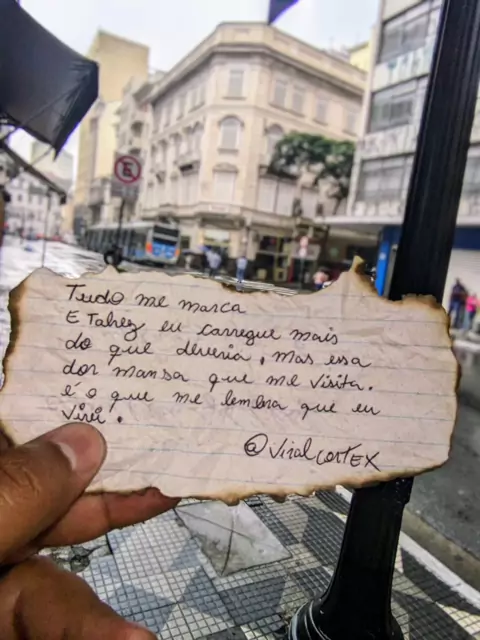 Tudo me marca
E Talvez eu carregue mais
do que deveria, mas essa
dor mansa que me visita.
é o que me lembra que eu
vivi.
@viralcortex
E